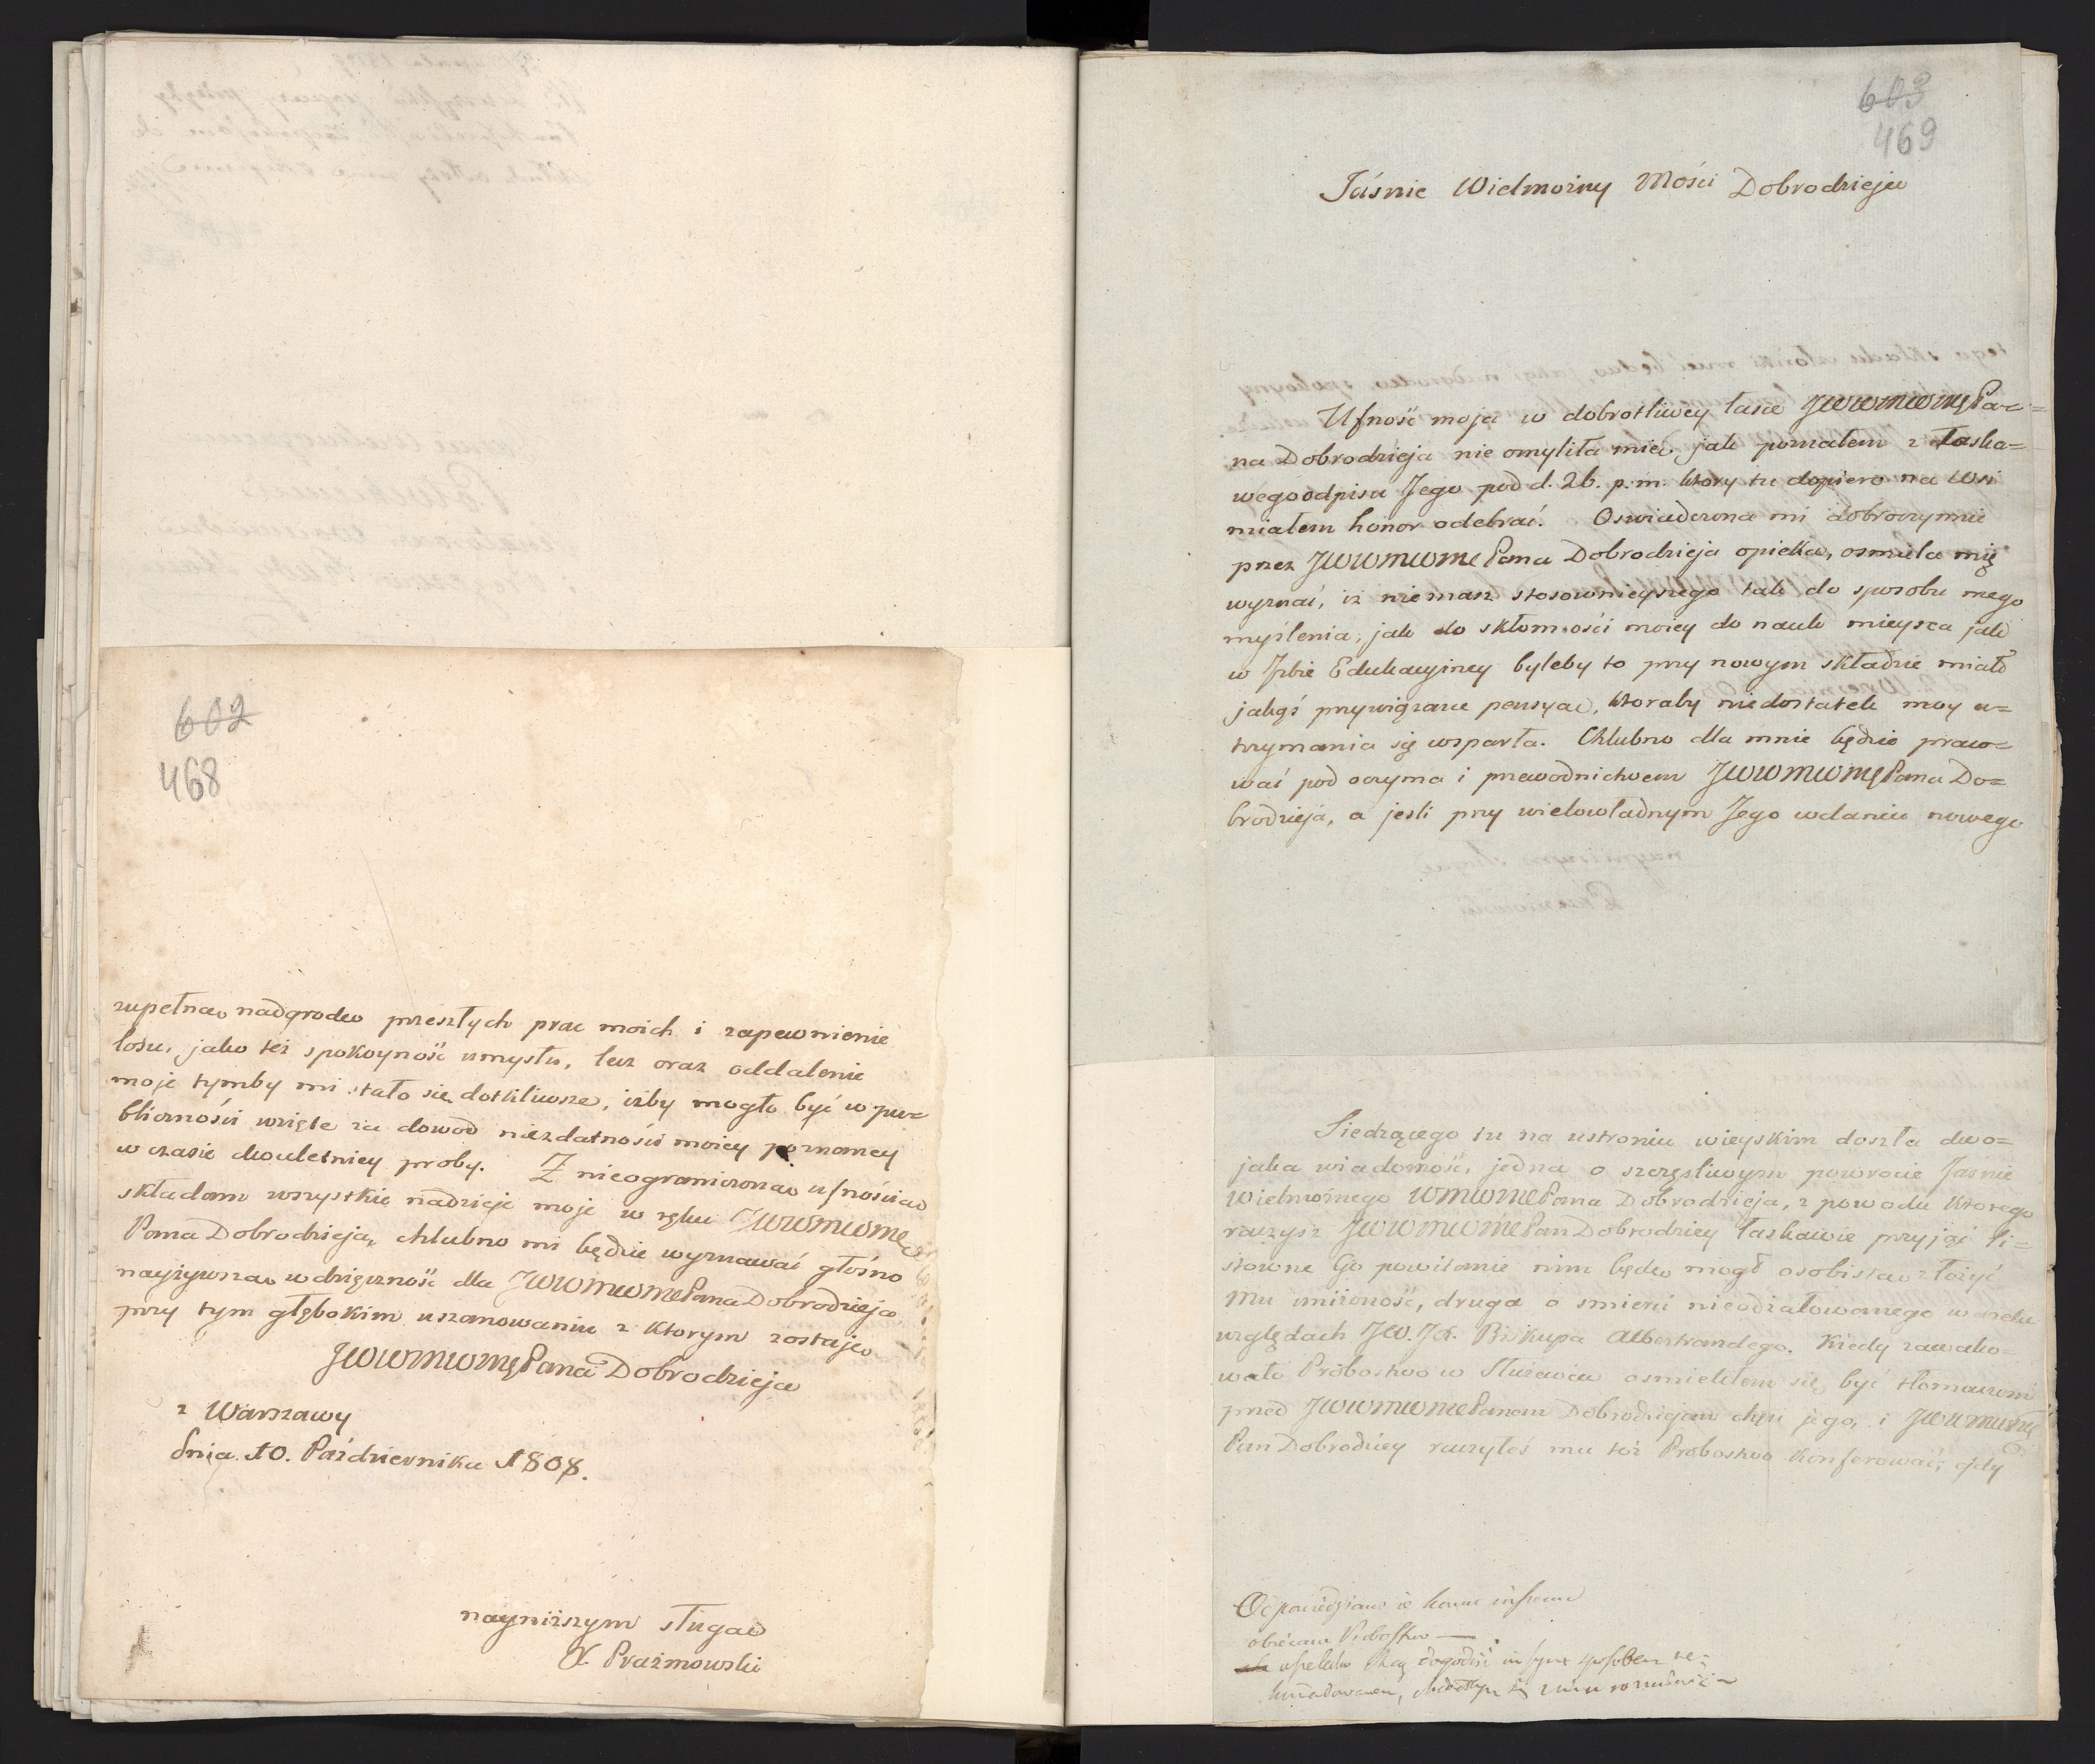 602
468
zupełną nadgrodę przeszłych prac moich i zapewnienie
losu, jako też spokoyność umysłu, lecz oraz oddalenie
moje tymby mi stało się dotkliwsze, iżby mogło być w pu=
bliczności wzięte za dowód niezdatności moiey poznaney
w czasie dwuletniey proby. Z nieograniczoną ufnością
składam wszystkie nadzieje moje w ręku JWWMWMę
Pana Dobrodzieja, chlubno mi będzie wyznawać głośno
nayżywszą wdzięczność dla JWWMWMę Pana Dobrodzieja
przy tym głębokim uszanowaniu z ktorym zostaję
JWWMWMę Pana Dobrodzieja
z Warszawy
dnia 10. Października 1808.
nayniższym sługą
X. Prażmowski
603
469
Jáśnie Wielmożny Mości Dobrodzieju
Ufność moja w dobrotliwey łasce JWWMWMę Pa=
na Dobrodzieja nie omyliła mię, jak poznałem z łaska=
wego odpisu Jego pod d. 26. p. m. ktory tu dopiero na wsi
miałem honor odebrać. Oswiadczona mi dobroczynnie
przez JWWMWMę Pana Dobrodzieja opieka, osmiela mię
wyznać, iż niemasz stosownieyszego tak do sposobu mego
myślenia, jak do skłonności moiey do nauk mieysca jak
w Izbie Edukacyiney byleby to przy nowym składzie miało
jakąś przywiązane pensyą, ktoraby niedostatek moy u=
trzymania się wsparła. Chlubno dla mnie będzie praco=
wać pod oczyma i przewodnictwem JWWMWMę Pana Do=
brodzieja, a jesli przy wielowładnym Jego wdaniu nowego
Siedzącego tu na ustroniu wieyskim doszła dwo=
jaka wiadomość, jedna o szczęśliwym powrocie Jaśnie
Wielmożnego WMWMę Pana Dobrodzieja, z powodu ktorego
raczysz JWWMWMę Pan Dobrodziey łaskawie przyjąć li=
stowne Go powitanie nim będę mogł osobistą złożyć
Mu uniżoność, druga o smierci nieodżałowanego w wielu
względach JW. JX. Biskupa Albertrandego. Kiedy zawako=
wało Probostwo w Służewcu osmieliłem się być tłomaczem
przed JWWMWMę Panem Dobrodziejem chęci jego, i JWWMWMę
Pan Dobrodziey raczyłeś mu toż Probostwo konferować; gdy
Odpowiedziano że komu inszemu
obiecane Probostwo —